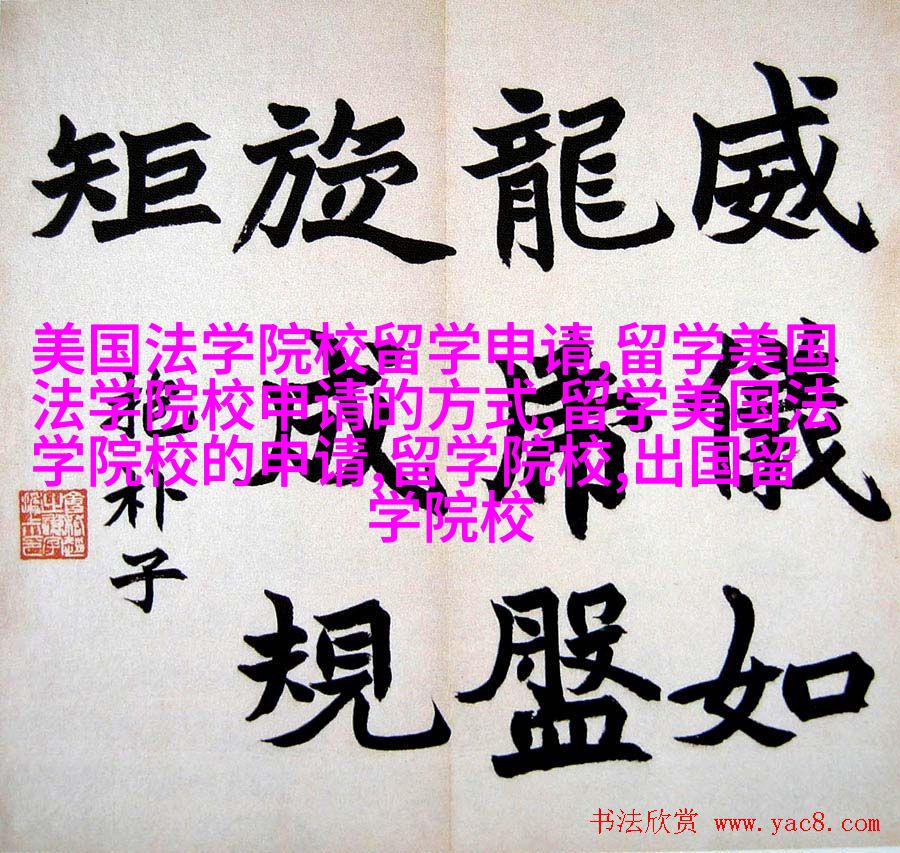 威儀如
龍虎盤
旋成規
矩
抱朴子
美国法学院校留学申请,留学美国
法学院校申请的方式,留学美国法
学院校的申请,留学院校,出国留
学院校
书法欣赏 www.yac8.com